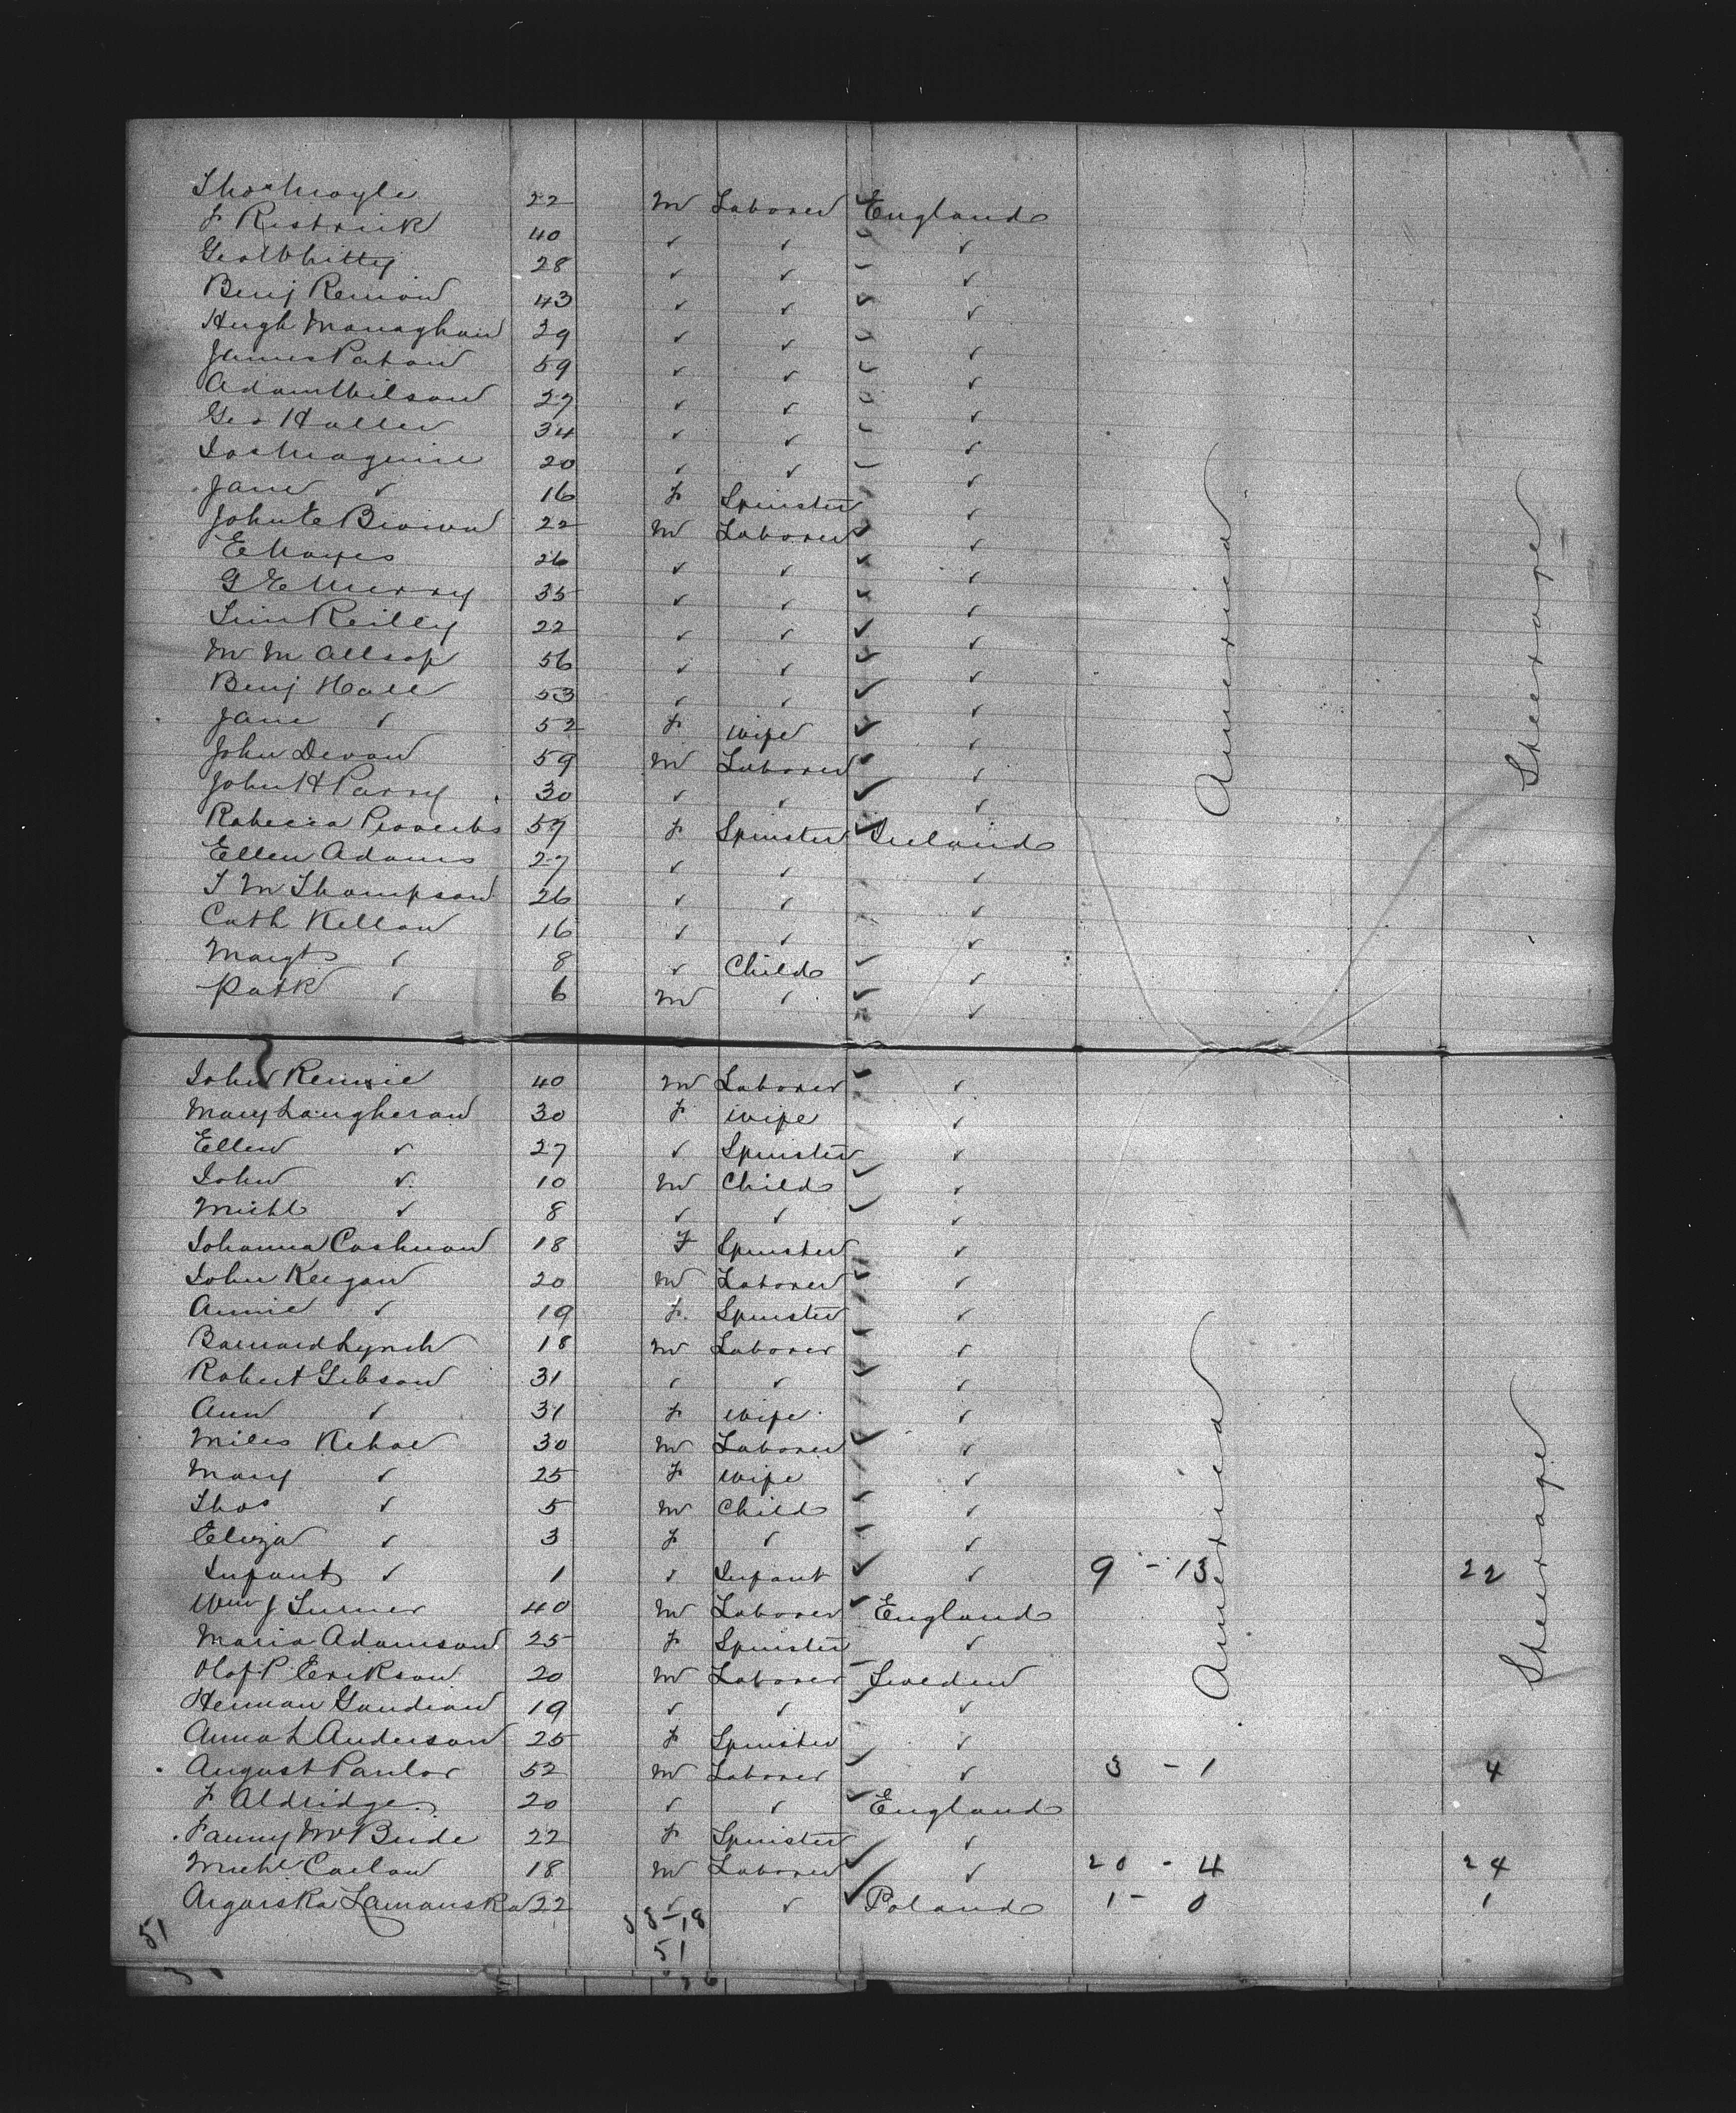 Thos Moyle 22 M Laborer ✓ England America Steerage
F Restrick 40 ✓ ✓ ✓
Geo Whitty 28 ✓ ✓ ✓
Benj Remow 43 ✓ ✓ ✓
Hugh Monaghan 29 ✓ ✓ ✓
James Paton 59 ✓ ✓ ✓
Adam Wilson 27 ✓ ✓ ✓
Geo Haller 34 ✓ ✓ ✓
Jos Maguire 20 ✓ ✓ ✓
Jane ✓ 16 F Spinster ✓
John E Brown 22 M Laborer ✓
E Mayes 26 ✓ ✓ ✓
G E Murry 35 ✓ ✓ ✓
Jim Reilly 22 ✓ ✓ ✓
W M Allsop 56 ✓ ✓ ✓
Benj Hall 53 ✓ ✓ ✓
Jane ✓ 52 F wife ✓
John Devon 59 M Laborer ✓
John H Parry 30 ✓ ✓ ✓
Rebecca Proverbs 57 F Spinster ✓ Ireland
Ellen Adams 27 ✓ ✓ ✓
T M Thompson 26 ✓ ✓ ✓
Cath Kellow 16 ✓ ✓ ✓
Margt ✓ 8 ✓ Child ✓
Patk ✓ 6 M ✓ ✓
John Rennie 40 M Laborer ✓ America Steerage
Mary Laugheran 30 F wife ✓
Ellen ✓ 27 ✓ Spinster ✓
John ✓ 10 M Child ✓
Michl ✓ 8 ✓ ✓ ✓
Johanna Cashman 18 F Spinster ✓
John Keegan 20 M Laborer ✓
Annie ✓ 19 F Spinster ✓
Barnard Lynch 18 M Laborer ✓
Robert Gibson 31 ✓ ✓ ✓
Ann ✓ 31 F wife ✓
Miles Kehoe 30 M Laborer ✓
Mary ✓ 25 F wife ✓
Thos ✓ 5 M Child ✓
Eliza ✓ 3 F ✓ ✓
Infant ✓ 1 ✓ Infant ✓ 9 - 13 22
Wm J Turner 40 M Laborer England
Maria Adamson 25 F Spinster ✓
Olof P Erikson 20 M Laborer Sweden
Herman Gandian 19 ✓ ✓ ✓
Anna L Anderson 25 F Spinster ✓
August Panlor 52 M Laborer ✓ 3 - 1 4
F Aldridge 20 ✓ ✓ England
Fanny McBride 22 F Spinster ✓
Michl Carlon 18 M Laborer ✓ 20 - 4 24
Lamanska 22 ✓ ✓ Poland 1 - 0 1
51 8-18
51